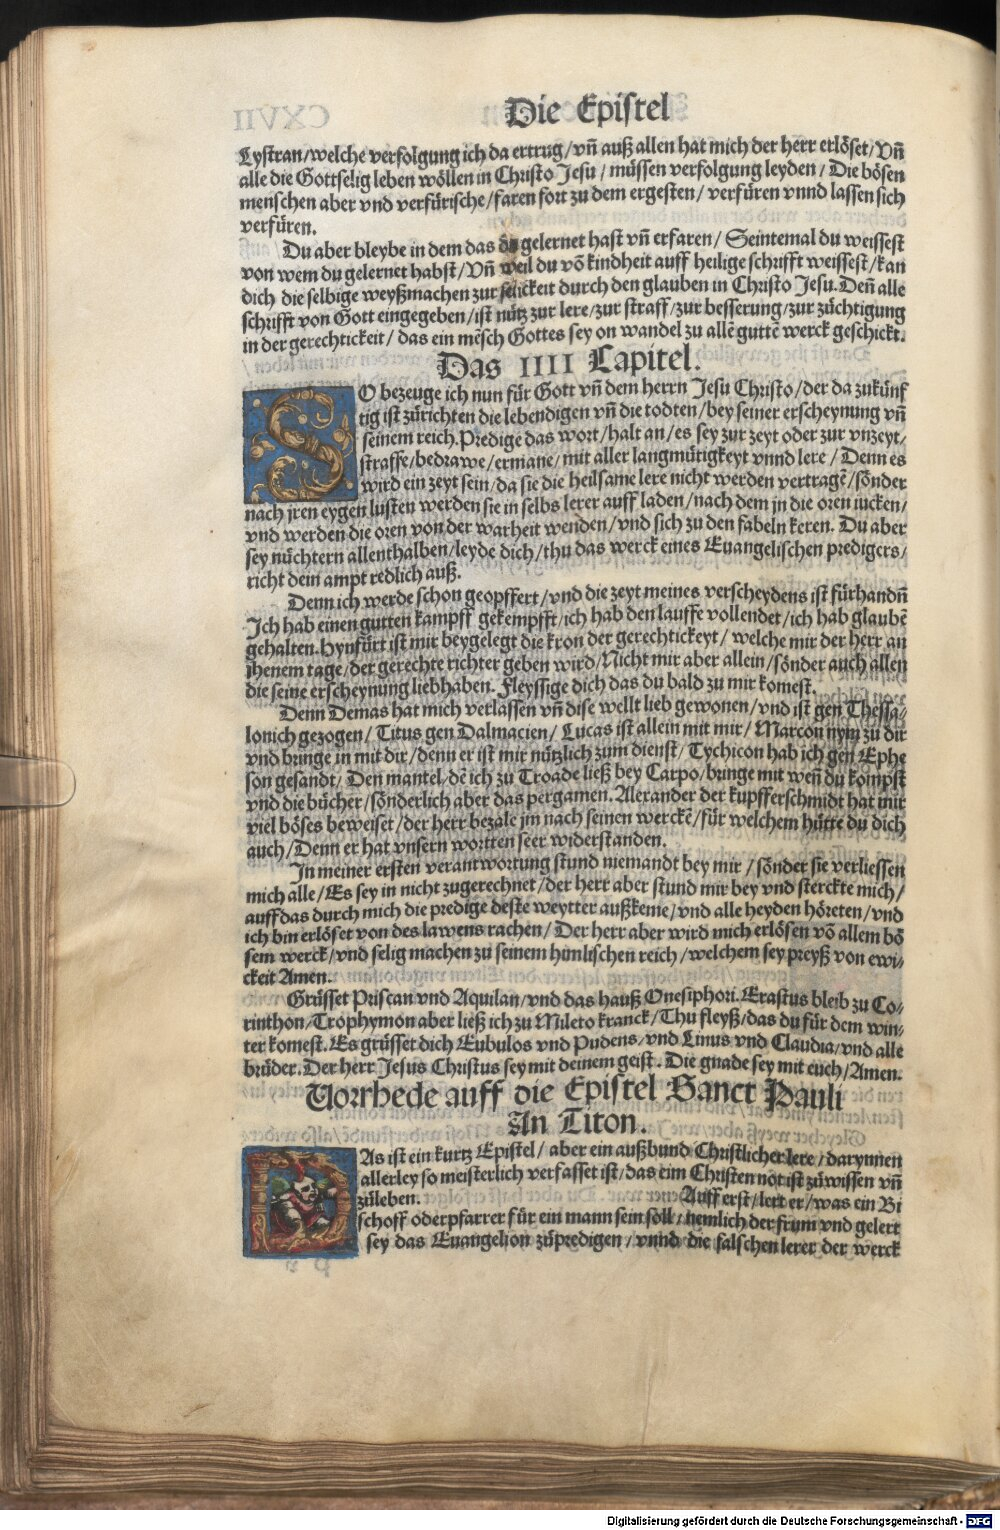 Die Epistel
Lystran/welche verfolgung ich da ertrug/vn̄ auß allen hat mich der herr erlöset/Vn̄
alle die Gottselig leben wöllen in Christo Jesu/müssen verfolgung leyden/Die bösen
menschen aber vnd verfürische/faren fort zu dem ergesten/verfüren vnnd lassen sich
verfüren.
Du aber bleybe in dem das du gelernet hast vn̄ erfaren/Seintemal du weissest
von wem du gelernet habst/Vn̄ weil du vō kindheit auff heilige schrifft weissest/kan
dich die selbige weyßmachen zur selickeit durch den glauben in Christo Jesu. Den̄ alle
schrifft von Gott eingegeben/ist nütz zur lere/zur straff/zur besserung/zur züchtigung
in der gerechtickeit/das ein mēsch Gottes sey on wandel zu allē guttē werck geschickt.
Das IIII Capitel.
SO bezeuge ich nun für Gott vn̄ dem herrn Jesu Christo/der da zukünf
tig ist zůrichten die lebendigen vn̄ die todten/bey seiner erscheynung vn̄
seinem reich. Predige das wort/halt an/es sey zur zeyt oder zur vnzeyt/
straffe/bedrawe/ermane/mit aller langmütigkeyt vnnd lere/Denn es
wird ein zeyt sein/da sie die heilsame lere nicht werden vertragē/sönder
nach jren eygen lusten werden sie in selbs lerer auff laden/nach dem jn die oren iucken/
vnd werden die oren von der warheit wenden/vnd sich zu den fabeln keren. Du aber
sey nüchtern allenthalben/leyde dich/thu das werck eines Euangelischen predigers/
richt dein ampt redlich auß.
Denn ich werde schon geopffert/vnd die zeyt meines verscheydens ist fürhandn̄
Ich hab einen gutten kampff gekempfft/ich hab den lauffe vollendet/ich hab glaubē
gehalten. Hynfürt ist mir beygelegt die kron der gerechtickeyt/welche mir der herr an
jhenem tage/der gerechte richter geben wird/Nicht mir aber allein/sönder auch allen
die seine erscheynung liebhaben. Fleyssige dich das du bald zu mir komest.
Denn Demas hat mich verlassen vn̄ dise wellt lieb gewonen/vnd ist gen Thessa-
lonich gezogen/Titus gen Dalmacien/Lucas ist allein mit mir/Marcon nym zu dir
vnd bringe in mit dir/denn er ist mir nützlich zum dienst/Tychicon hab ich gen Ephe
son gesandt/Den mantel/dē ich zu Troade ließ bey Carpo/bringe mit wen̄ du kompst
vnd die bücher/sönderlich aber das pergamen. Alexander der kupfferschmidt hat mir
viel böses beweiset/der herr bezale jm nach seinen werckē/für welchem hütte du dich
auch/Denn er hat vnsern wortten seer widerstanden.
In meiner ersten verantwortung stund niemandt bey mir/sönder sie verliessen
mich alle/Es sey in nicht zugerechnet/der herr aber stund mir bey vnd sterckte mich/
auff das durch mich die predige deste weytter außkeme/vnd alle heyden höreten/vnd
ich bin erlöset von des lawens rachen/Der herr aber wird mich erlösen vō allem bö
sem werck/vnd selig machen zu seinem himlischen reich/welchem sey preyß von ewi-
ckeit Amen.
Grüsset Priscan vnd Aquilan/vnd das hauß Onesiphori. Erastus bleib zu Co-
rinthon/Trophymon aber ließ ich zu Mileto kranck/Thu fleyß/das du für dem win-
ter komest. Es grüsset dich Eubulos vnd Pudens/vnd Linus vnd Claudia/vnd alle
brüder. Der herr Jesus Christus sey mit deinem geist. Die gnade sey mit euch/Amen.
Vorrhede auff die Epistel Sanct Pauli
An Titon.
DAs ist ein kurtz Epistel/aber ein außbund Christlicher lere/darynnen
allerley so meisterlich verfasset ist/das eim Christen not ist zůwissen vn̄
zůleben. Auff erst/lert er/was ein Bi
schoff oder pfarrer für ein mann sein söll/nemlich der frum vnd gelert
sey das Euangelion zůpredigen/vnnd die falschen lerer der werck
Digitalisierung gefördert durch die Deutsche Forschungsgemeinschaft - DFG